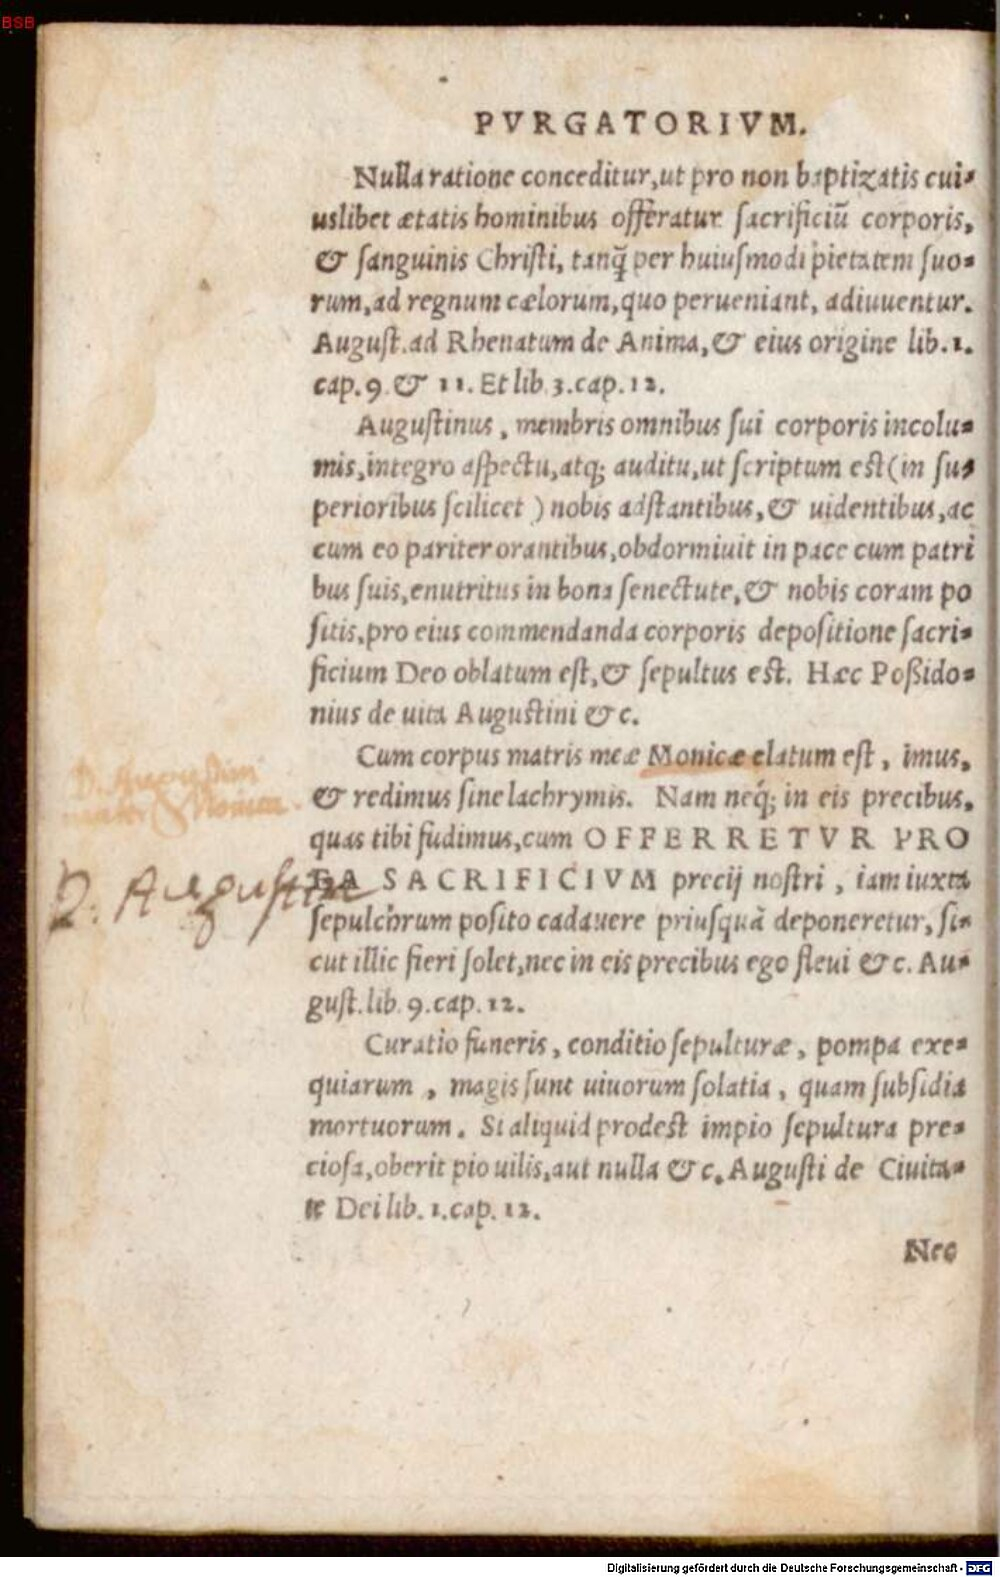 BSB
PVRGATORIVM.
Nulla ratione conceditur, ut pro non baptizatis cui-
uslibet ætatis hominibus offeratur sacrificiũ corporis,
& sanguinis Christi, tanq̃ per huiusmodi pietatem suo-
rum, ad regnum cælorum, quo perueniant, adiuuentur.
August. ad Rhenatum de Anima, & eius origine lib. 1.
cap. 9. & 11. Et lib. 3. cap. 12.
Augustinus, membris omnibus sui corporis incolu-
mis, integro aspectu, atq; auditu, ut scriptum est (in su-
perioribus scilicet) nobis adstantibus, & uidentibus, ac
cum eo pariter orantibus, obdormiuit in pace cum patri
bus suis, enutritus in bona senectute, & nobis coram po
sitis, pro eius commendanda corporis depositione sacri-
ficium Deo oblatum est, & sepultus est. Hæc Poßido-
nius de uita Augustini &c.
Cum corpus matris meæ Monicæ elatum est, imus,
& redimus sine lachrymis. Nam neq́; in eis precibus,
quas tibi fudimus, cum OFFERRETVR PRO
EA SACRIFICIVM precij nostri, iam iuxta
sepulchrum posito cadauere priusquã deponeretur, si-
cut illic fieri solet, nec in eis precibus ego fleui &c. Au-
gust. lib. 9. cap. 12.
Curatio funeris, conditio sepulturæ, pompa exe-
quiarum, magis sunt uiuorum solatia, quam subsidia
mortuorum. Si aliquid prodest impio sepultura pre-
ciosa, oberit pio uilis, aut nulla &c. Augusti de Ciuita-
te Dei lib. 1. cap. 12.
Nec
D. Augustini
mater Monica.
D. Augustin
Digitalisierung gefördert durch die Deutsche Forschungsgemeinschaft - DFG